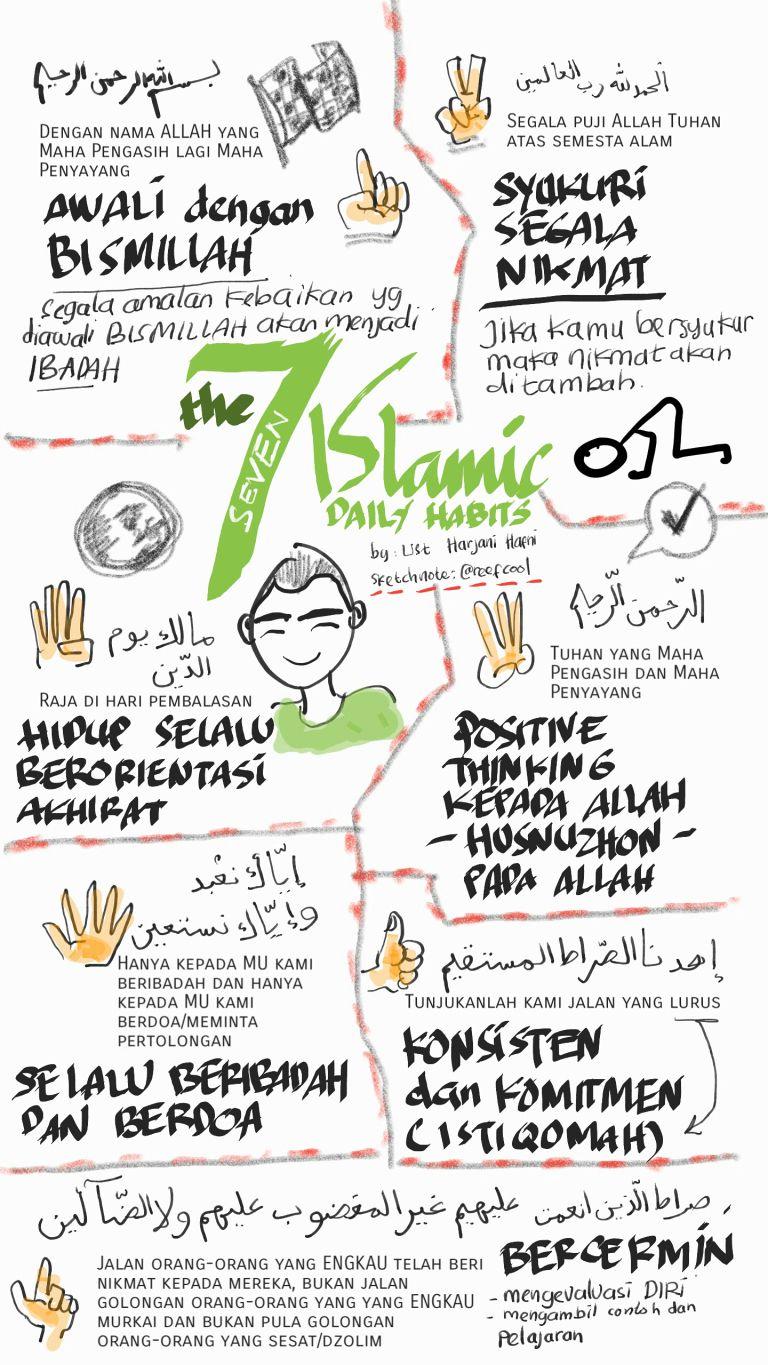 بسم الله الرحمن الرحيم
DENGAN NAMA ALLAH YANG
MAHA PENGASIH LAGI MAHA
PENYAYANG
AWALI dengan
BISMILLAH
segala amalan kebaikan yg
diawali BISMILLAH akan menjadi
IBADAH
الحمد لله رب العالمين
SEGALA PUJI ALLAH TUHAN
ATAS SEMESTA ALAM
SYUKURI
SEGALA
NIKMAT
Jika kamu bersyukur
maka nikmat akan
ditambah.
the 7 Islamic
SEVEN
DAILY HABITS
by: List Harjani Hafni
sketchnote: @roefcool
الرّحمن الرّحيم
TUHAN YANG MAHA
PENGASIH DAN MAHA
PENYAYANG
POSITIVE
THINKING
KEPADA ALLAH
- HUSNUZHON -
PADA ALLAH
مالك يوم
الدّين
RAJA DI HARI PEMBALASAN
HIDUP SELALU
BERORIENTASI
AKHIRAT
إيّاك نعبد
وإيّاك نستعين
HANYA KEPADA MU KAMI
BERIBADAH DAN HANYA
KEPADA MU KAMI
BERDOA/MEMINTA
PERTOLONGAN
SELALU BERIBADAH
DAN BERDOA
إهدنا الصّراط المستقيم
TUNJUKANLAH KAMI JALAN YANG LURUS
KONSISTEN
dan KOMITMEN
(ISTIQOMAH)
صراط الّذين انعمت عليهيم غير المغضوب عليهم ولا الضّآلين
JALAN ORANG-ORANG YANG ENGKAU TELAH BERI
NIKMAT KEPADA MEREKA, BUKAN JALAN
GOLONGAN ORANG-ORANG YANG YANG ENGKAU
MURKAI DAN BUKAN PULA GOLONGAN
ORANG-ORANG YANG SESAT/DZOLIM
BERCERMIN
- mengevaluasi DIRI
- mengambil contoh dan
Pelajaran